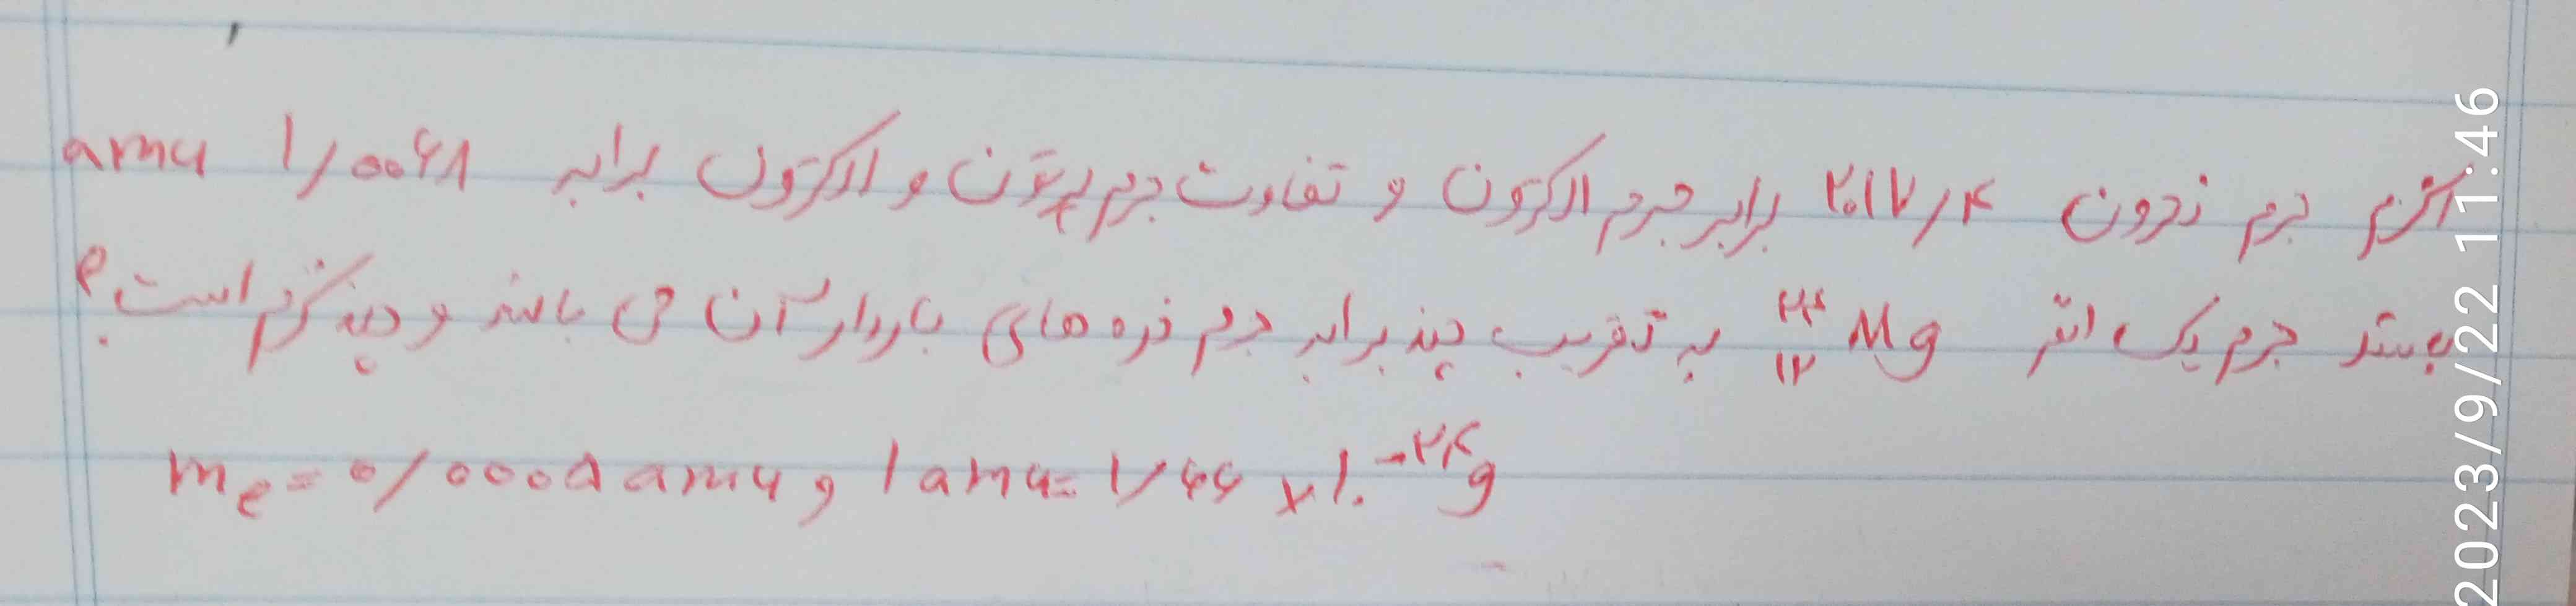 اگر جرم نوترون ۲۰۱۷/۴ برابر جرم الکترون و تفاوت جرم پروتون و الکترون برابر ۱/۰۰۶۸ amu
باشد جرم یک اتم ۲۴ ۱۲ Mg به تقریب چند برابر جرم ذره های باردار آن می باشد و چند گرم است؟
me = ۰/۰۰۰۵ amu و ۱ amu = ۱/۶۶ × ۱۰ -۲۴ g
2023/9/22 11:46